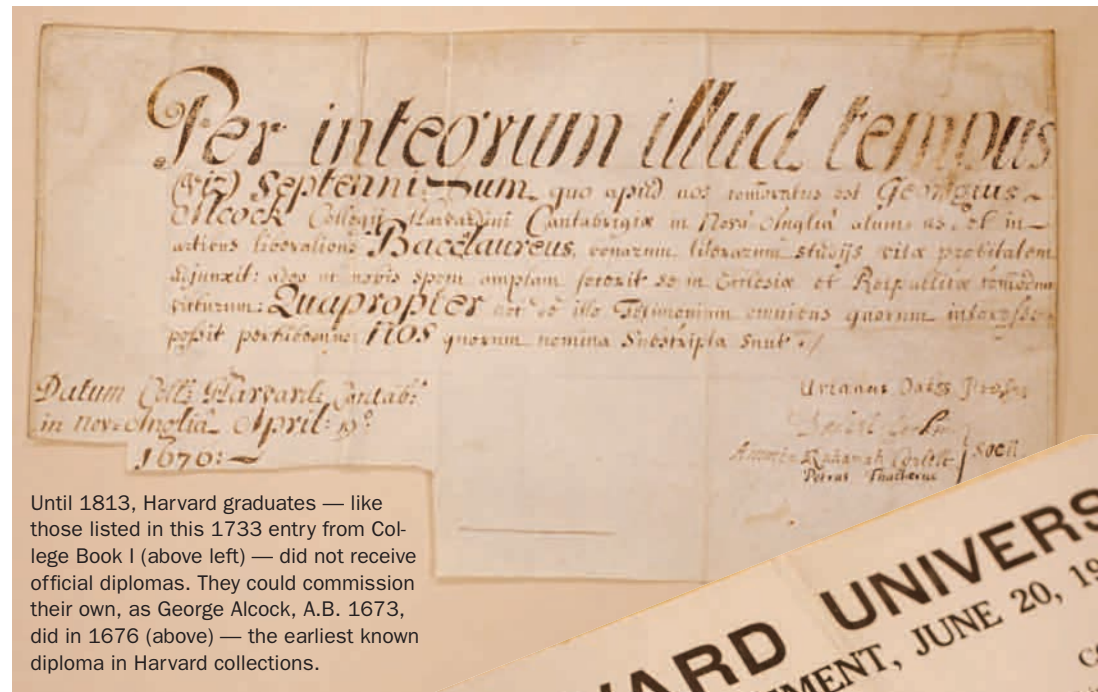 Per integrum illud tempus
(viz) Septenni-um quo apud nos comoratus est Georgius
Alcock Collegij Harvardini Cantabrigiæ in Nova Anglia alumnus, et in
artibus liberalibus Baccalaureus, bonarum literarum studijs vitæ probitatem
adjunxit: adeo ut nobis spem amplam fecerit se in Ecclesiæ et
Quapropter hoc ei illo Testimonium omnibus quorum
possit perhibemus NOS quorum nomina Subscripta sunt
Datum Coll: Harvard: Cantab:
in Nov: Anglia April: 19º
1676:
Urianus Oakes
Socii
Petrus Thacherus
Until 1813, Harvard graduates — like
those listed in this 1733 entry from Col-
lege Book I (above left) — did not receive
official diplomas. They could commission
their own, as George Alcock, A.B. 1673,
did in 1676 (above) — the earliest known
diploma in Harvard collections.
ARD UNIVERS
EMENT, JUNE 20, 19